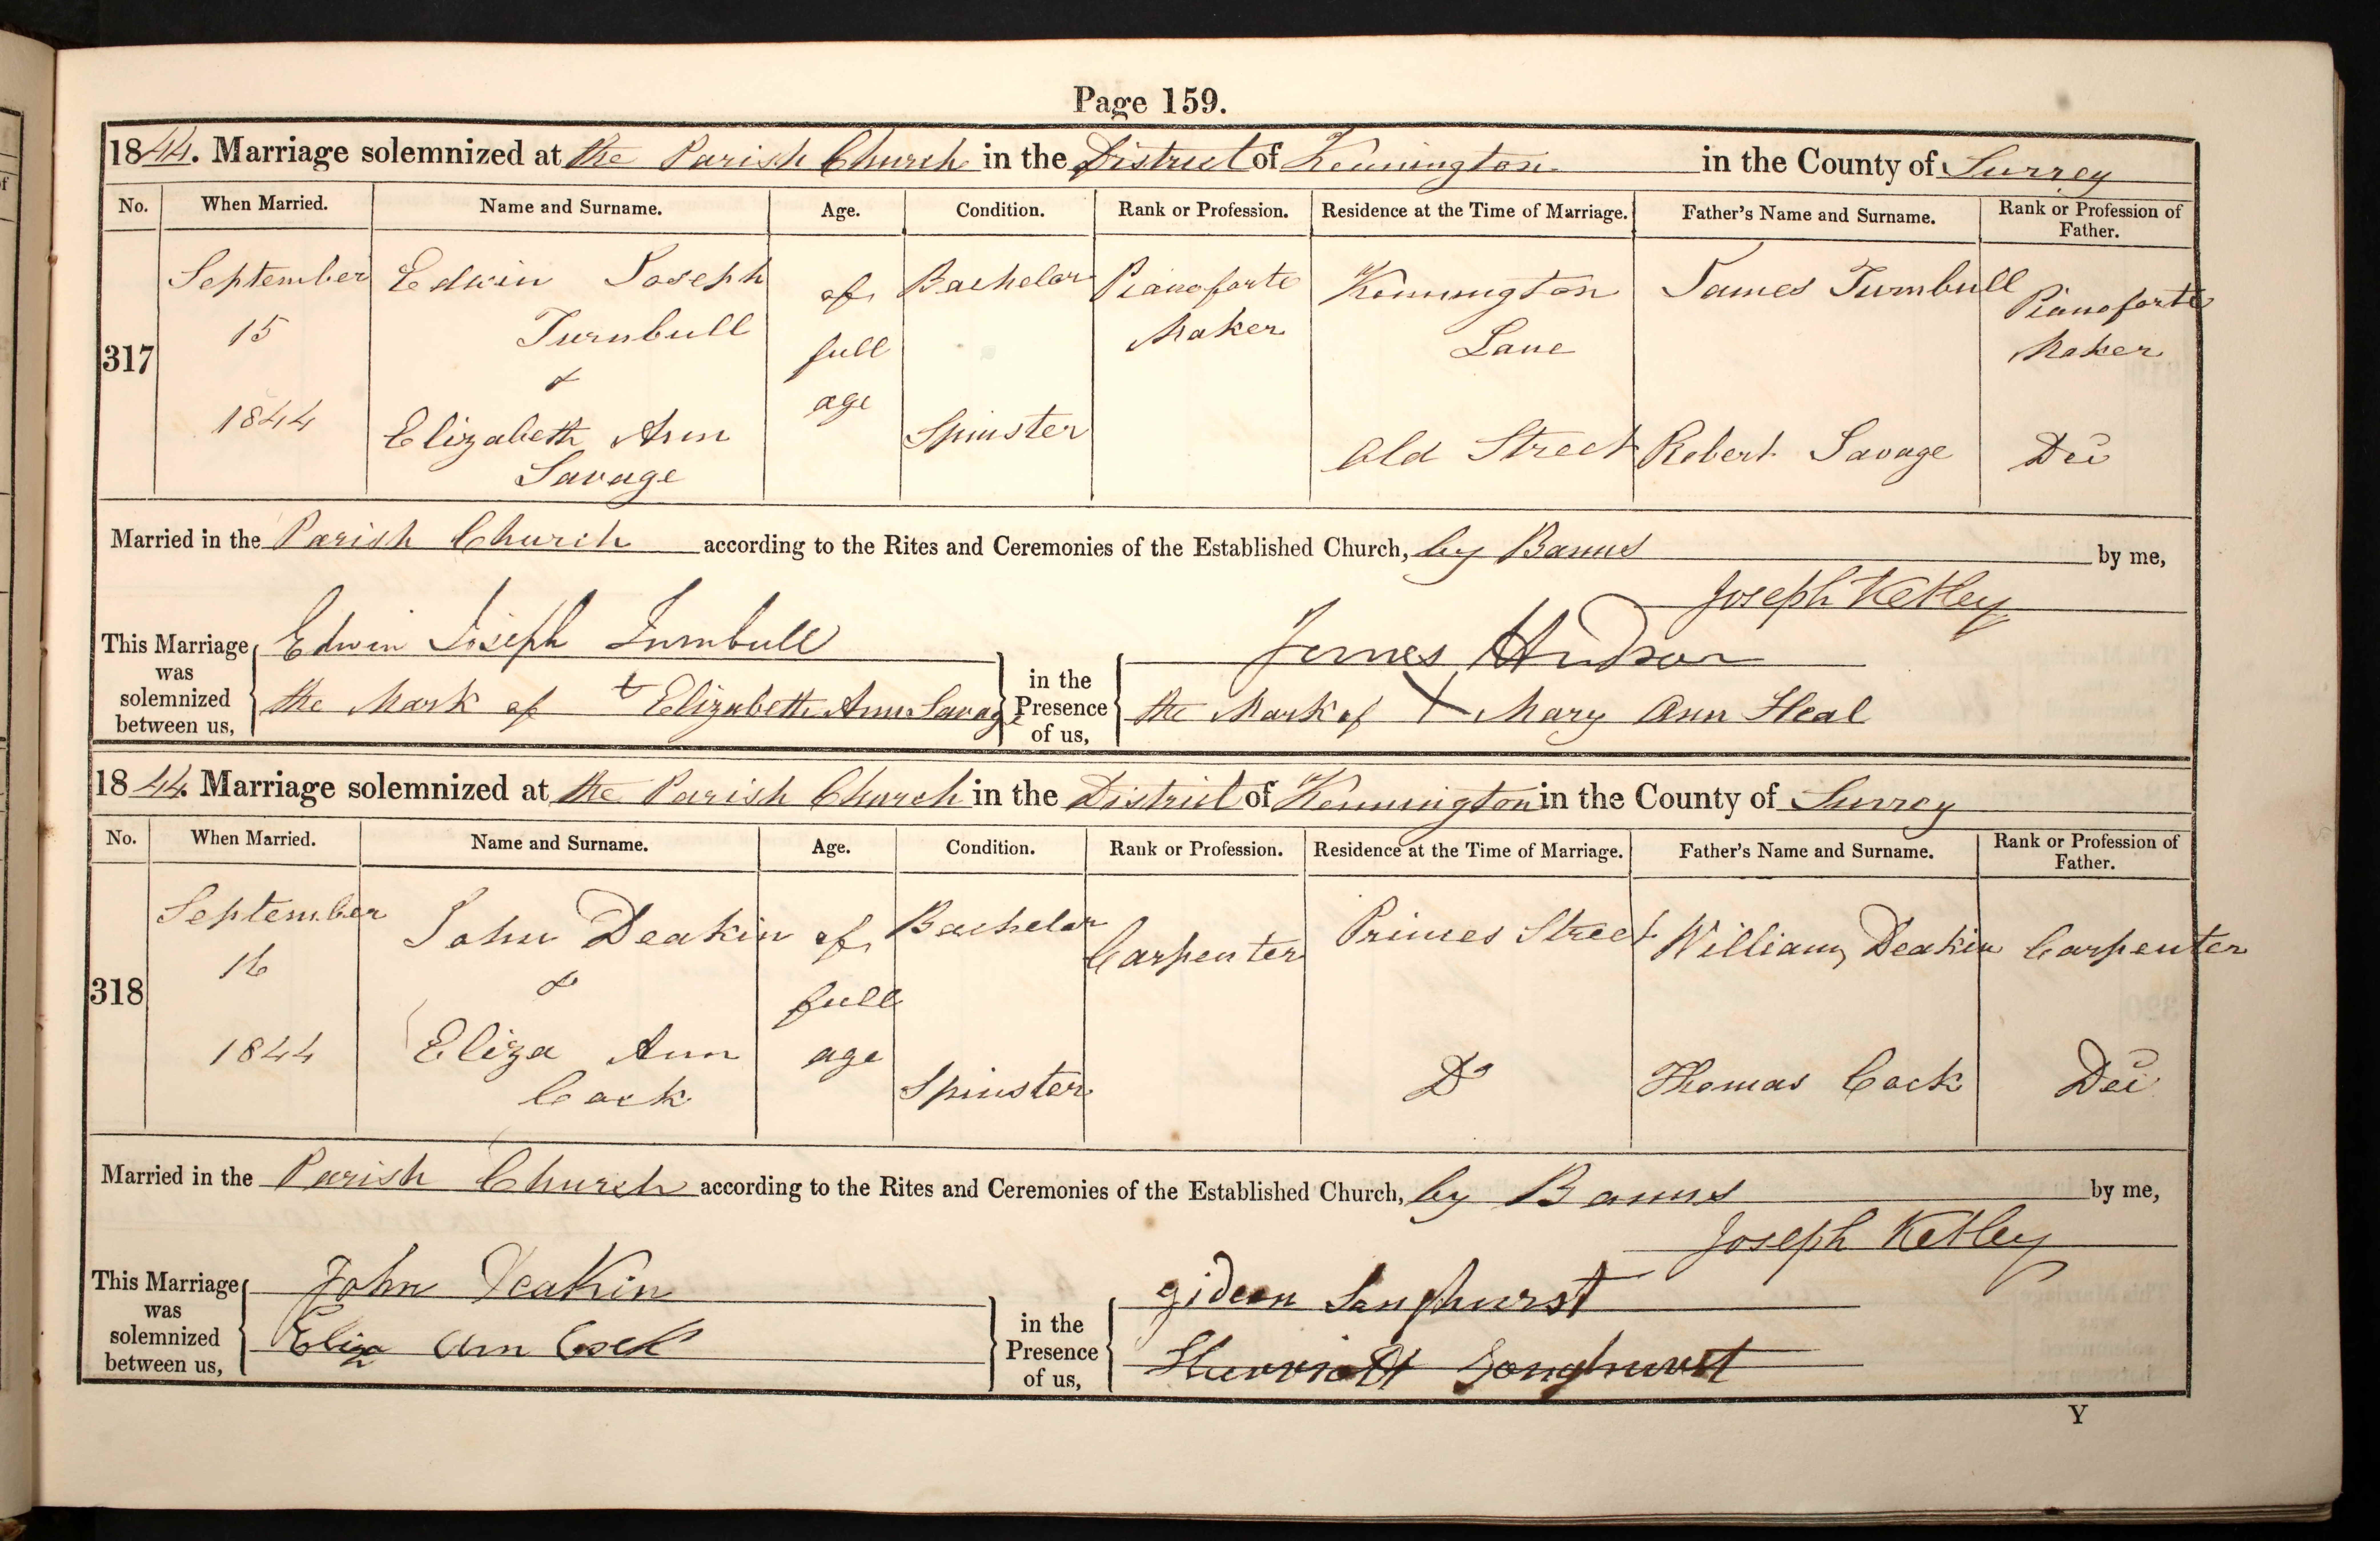 Page 159.
1844. Marriage solemnized at the Parish Church in the District of Kennington in the County of Surrey
No. When Married. Name and Surname. Age. Condition. Rank or Profession. Residence at the Time of Marriage. Father's Name and Surname. Rank or Profession of Father.
317
September
15
1844
Edwin Joseph
Turnbull
&
Elizabeth Ann
Savage
of
full
age
Bachelor
Spinster
Pianoforte
Maker
Kennington
Lane
Old Street
James Turnbull
Robert Savage
Pianoforte
Maker
Dec
Married in the Parish Church according to the Rites and Ceremonies of the Established Church, by Banns by me,
Joseph Ketley
This Marriage was solemnized between us,
Edwin Joseph Turnbull
the Mark of Elizabeth Ann Savage
in the Presence of us,
James Hudson
the Mark of X Mary Ann Heal
1844. Marriage solemnized at the Parish Church in the District of Kennington in the County of Surrey
No. When Married. Name and Surname. Age. Condition. Rank or Profession. Residence at the Time of Marriage. Father's Name and Surname. Rank or Profession of Father.
318
September
16
1844
John Deakin
&
Eliza Ann
Cock
of
full
age
Bachelor
Spinster
Carpenter
Princes Street
Do
William Deakin
Thomas Cock
Carpenter
Dec
Married in the Parish Church according to the Rites and Ceremonies of the Established Church, by Banns by me,
Joseph Ketley
This Marriage was solemnized between us,
John Deakin
Eliza Ann Cock
in the Presence of us,
Gideon Songhurst
Harriott Songhurst
Y